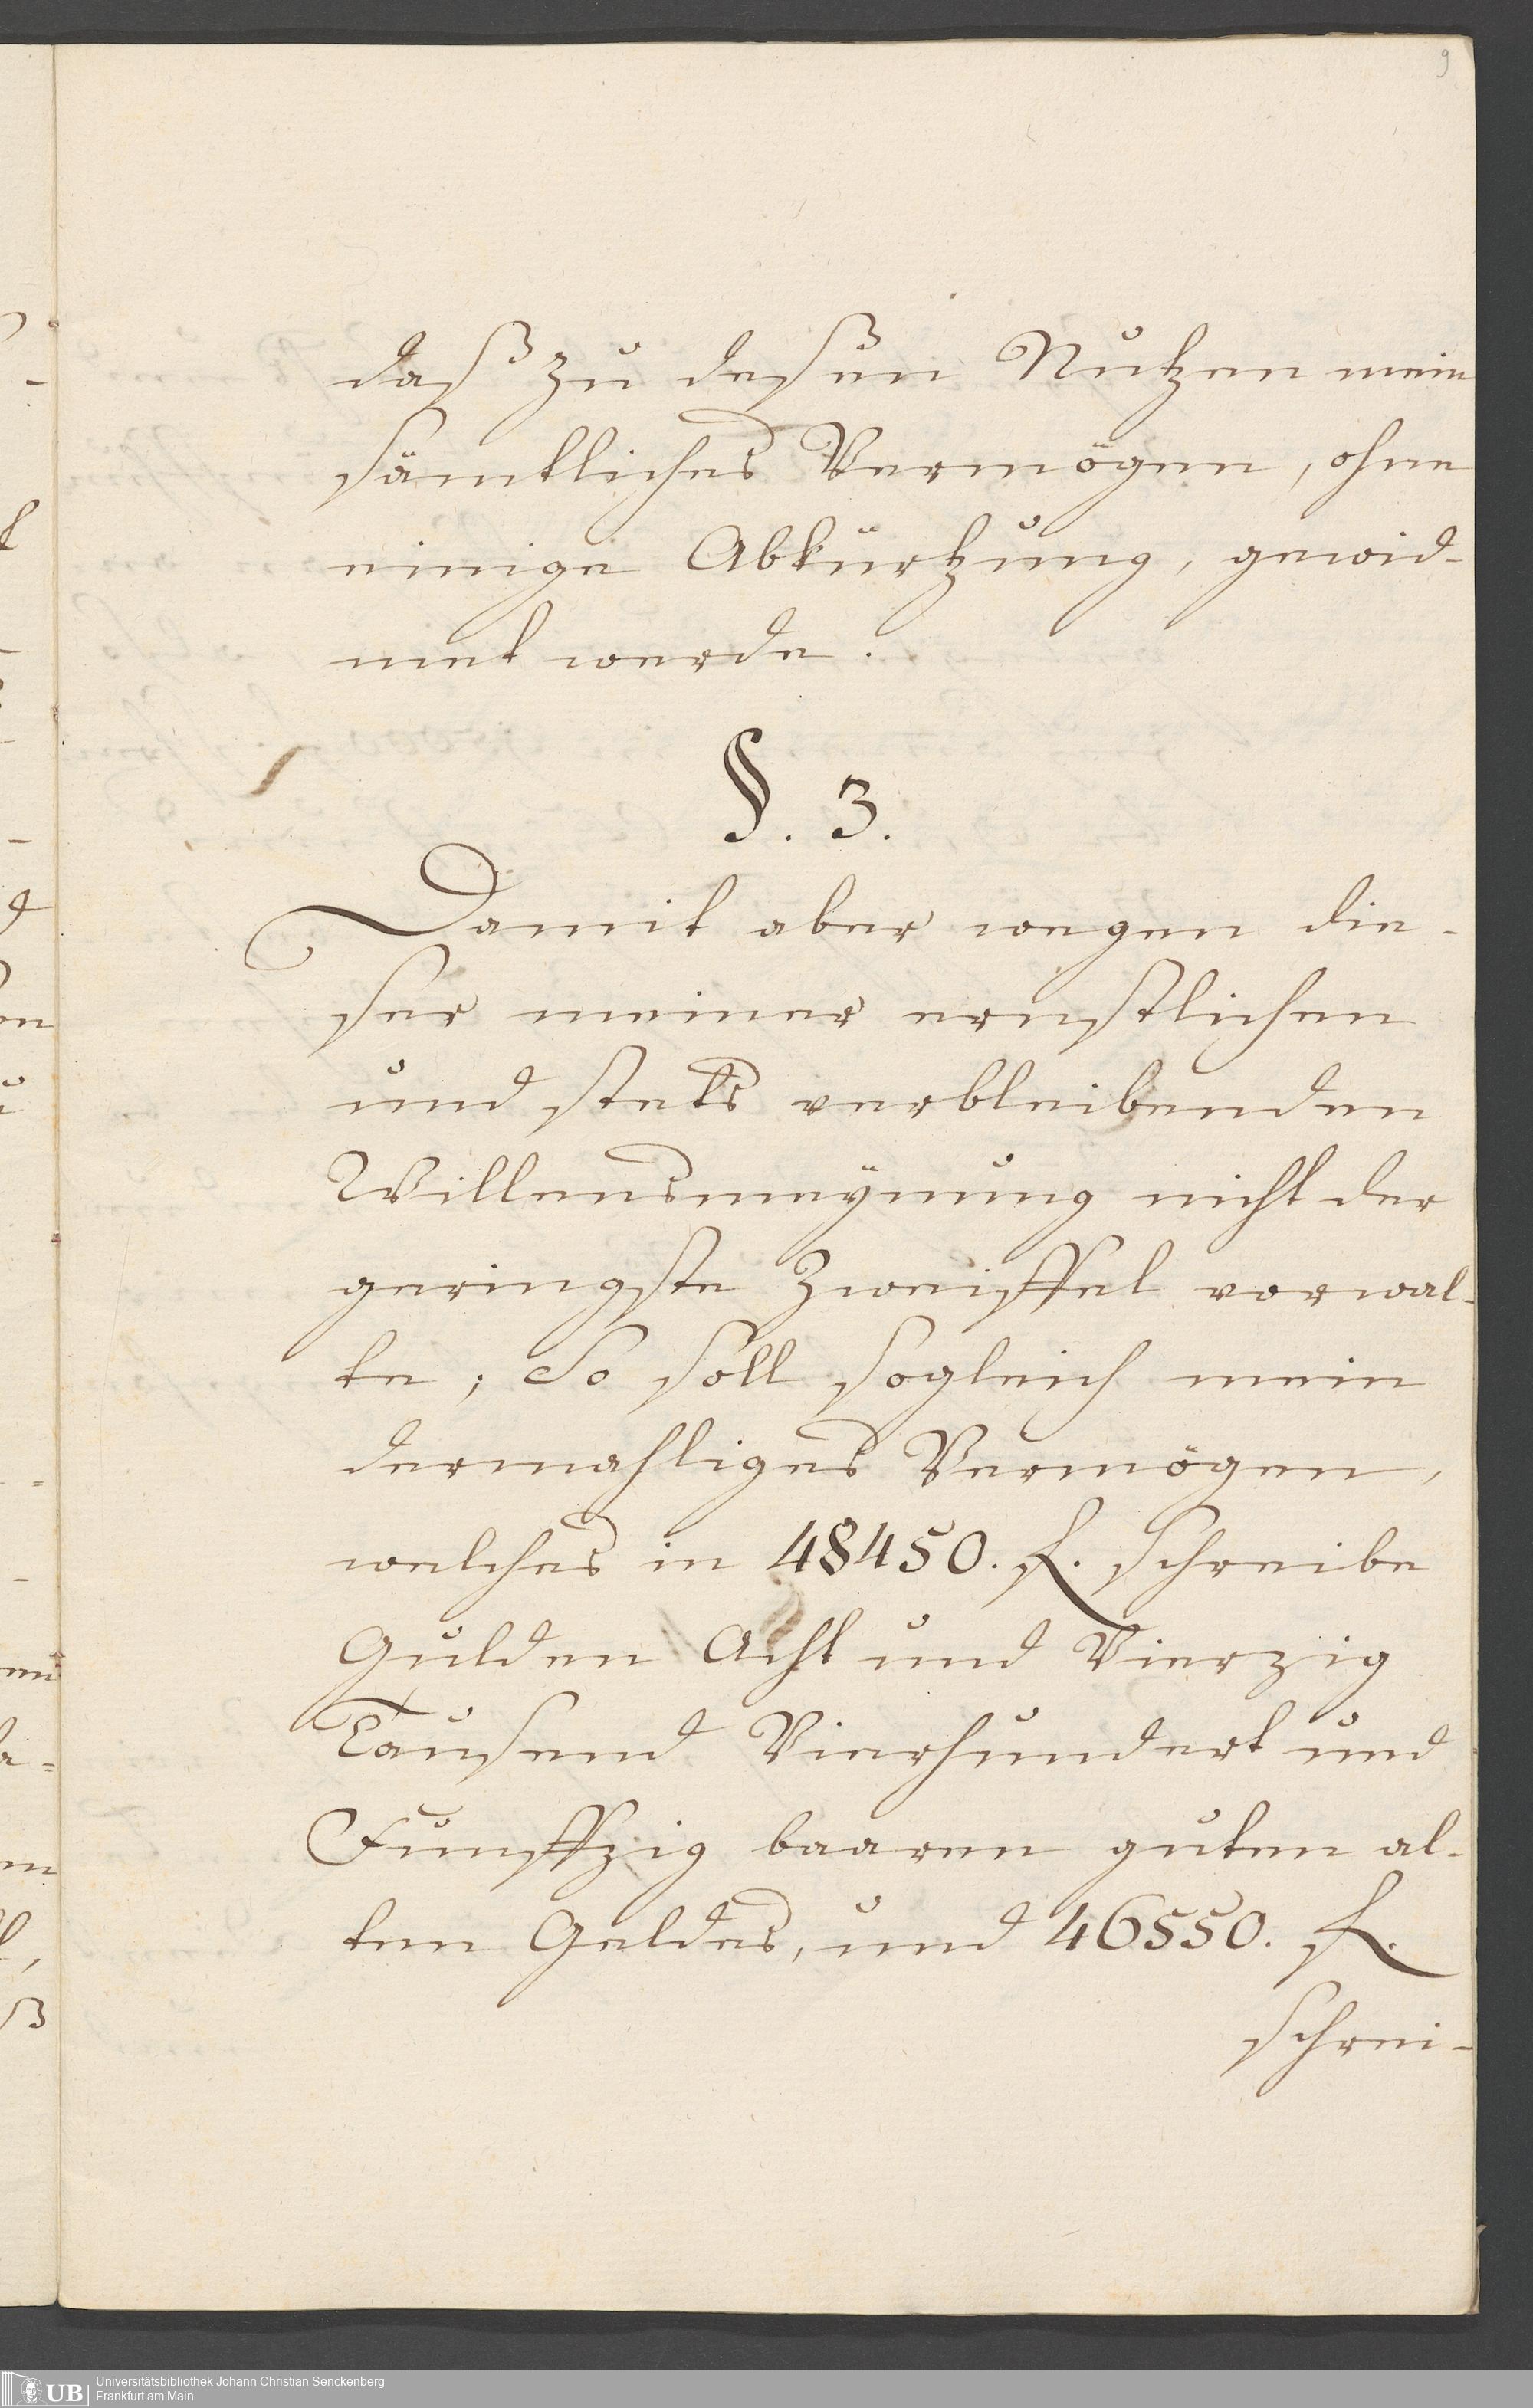 9
daß zu deßen Nutzen mein
sämtliches Vermögen, ohne
einige Abkürtzung, gewid-
met werde.
§. 3.
Damit aber wegen die-
ser meiner ernstlichen
und stets verbleibenden
Willensmeÿnung nicht der
geringste Zweiffel vorwal-
te; So soll sogleich mein
dermahliges Vermögen,
welches in 48450. f. schreibe
Gulden Acht und Vierzig
Tausend Vierhundert und
Funffzig baaren guten al-
ten Geldes, und 46550. f.
schrei-
UB
Universitätsbibliothek Johann Christian Senckenberg
Frankfurt am Main